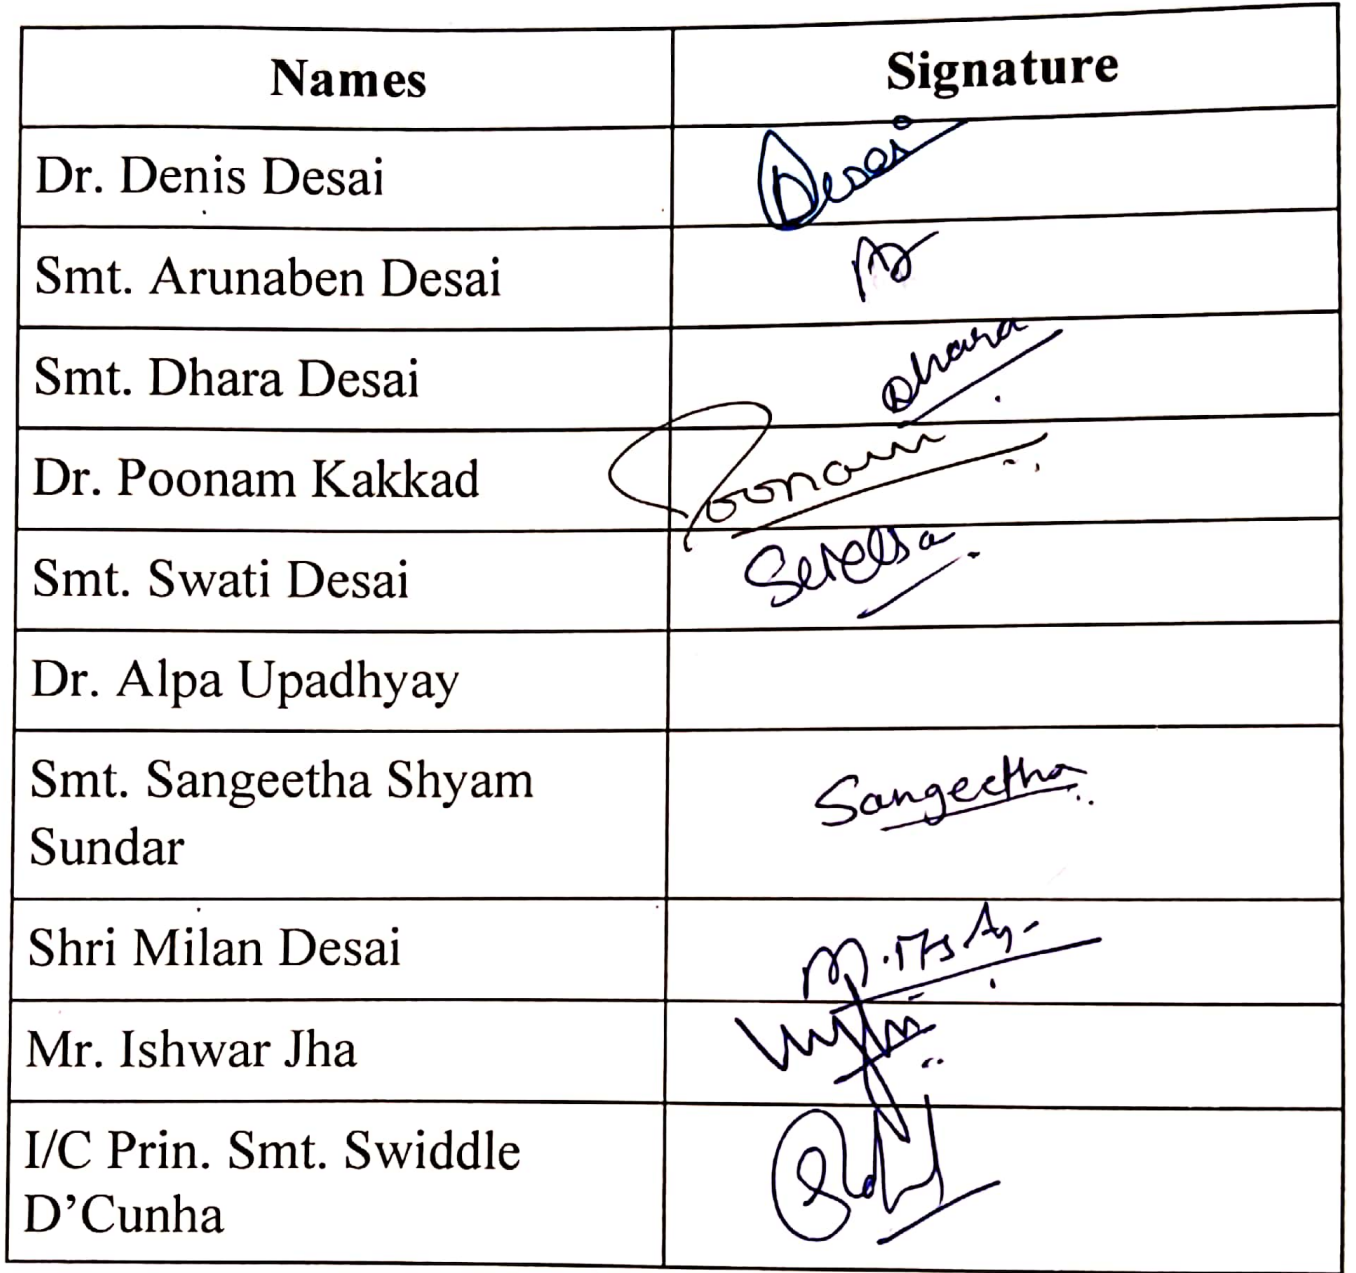 Names Signature
Dr. Denis Desai Desai
Smt. Arunaben Desai
Smt. Dhara Desai Dhara
Dr. Poonam Kakkad Poonam
Smt. Swati Desai
Dr. Alpa Upadhyay
Smt. Sangeetha Shyam Sangeetha
Sundar
Shri Milan Desai
Mr. Ishwar Jha
I/C Prin. Smt. Swiddle
D’Cunha